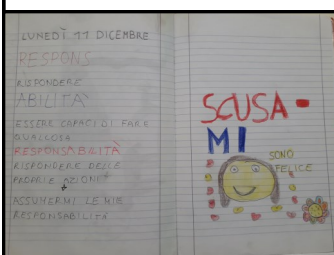 LUNEDÌ 11 DICEMBRE
RESPONS
RISPONDERE
ABILITÀ
ESSERE CAPACI DI FARE
QUALCOSA
RESPONSABILITÀ
RISPONDERE DELLE
PROPRIE AZIONI
ASSUMERMI LE MIE
RESPONSABILITÀ
SCUSA-
MI
SONO
FELICE